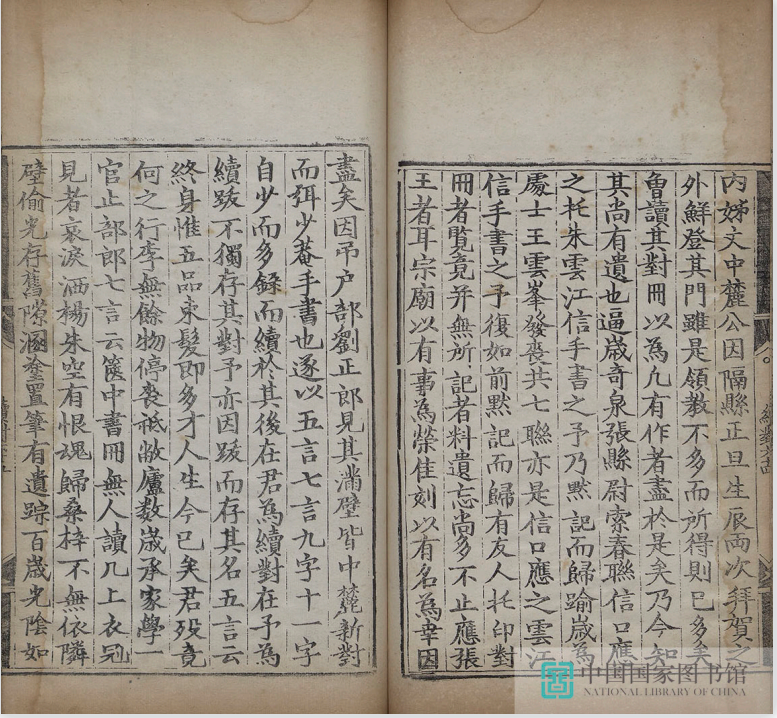 內姊丈中麓公因隔縣正旦生辰兩次拜賀之
外鮮登其門雖是領教不多而所得則已多矣
曾讀其對冊以為凡有作者盡於是矣乃今知
其尚有遺也逼歲奇泉張縣尉索春聯信口應
之托朱雲江信手書之予乃默記而歸踰歲為
處士王雲峯發喪共七聯亦是信口應之雲江
信手書之予復如前默記而歸有友人托印對
冊者覧竟并無所記者料遺忘尚多不止應張
王者耳宗廟以有事為榮佳刻以有名為幸因
續對六四
盡矣因吊户部劉正郎見其滿壁皆中麓新對
而弭少菴手書也遂以五言七言九字十一字
自少而多録而續於其後在君為續對在予為
續跋不獨存其對予亦因跋而存其名五言云
終身惟五品束髮即多才人生今已矣君歿竟
何之行李無餘物停喪秪敝廬数歲承家學一
官止部郎七言云篋中書冊無人讀几上衣冠
見者哀淚洒楊朱空有恨魂歸桑梓不無依隣
壁偷光存舊隙溷壑置筆有遺踪百歲光陰如
中国国家图书馆
NATIONAL LIBRARY OF CHINA